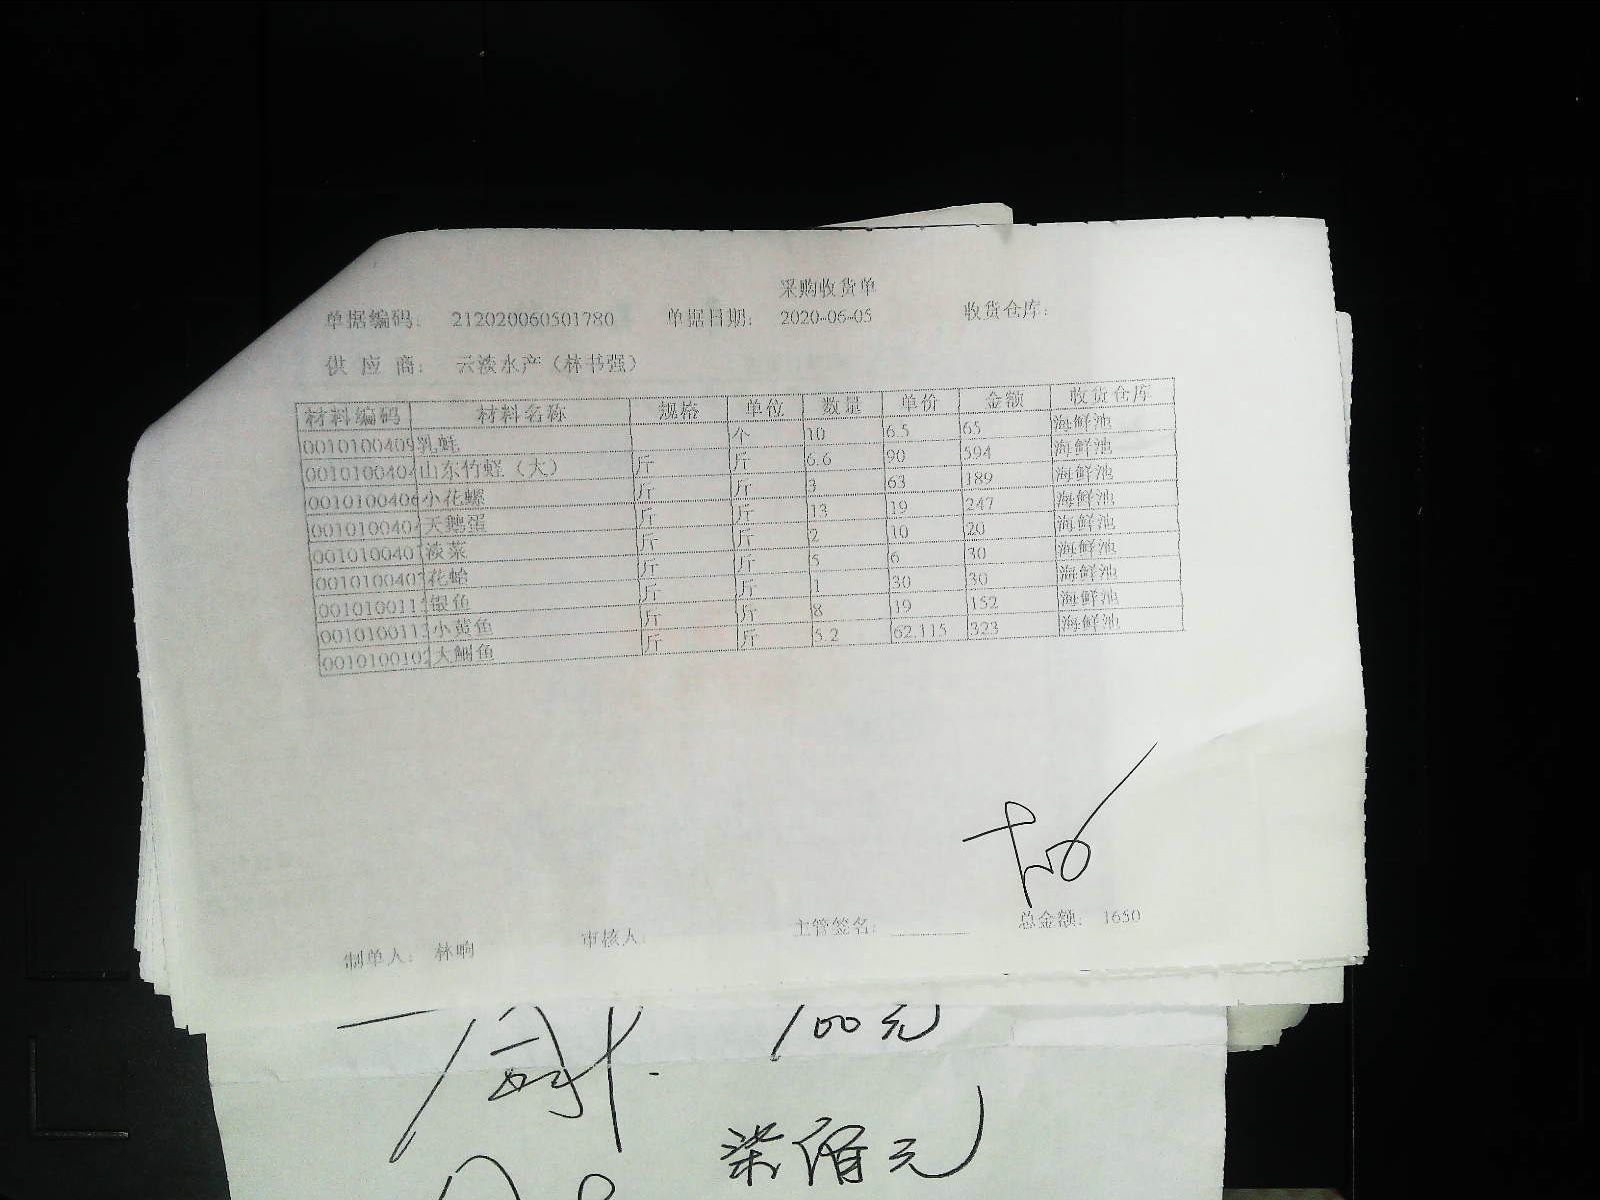 采购收货单
单据编码: 212020060501780 单据日期: 2020-06-05 收货仓库:
供应商: 云淡水产(林书强)
材料编码 材料名称 规格 单位 数量 单价 金额 收货仓库
0010100409 乳蚝 个 10 6.5 65 海鲜池
001010040 山东竹蛏(大) 斤 斤 6.6 90 594 海鲜池
0010100406 小花螺 斤 斤 3 63 189 海鲜池
001010040 天鹅蛋 斤 斤 13 19 247 海鲜池
001010040 淡菜 斤 斤 2 10 20 海鲜池
001010040 花蛤 斤 斤 5 6 30 海鲜池
001010011 银鱼 斤 斤 1 30 30 海鲜池
001010011 小黄鱼 斤 斤 8 19 152 海鲜池
001010010 大鲷鱼 斤 斤 5.2 62.115 323 海鲜池
制单人: 林响 审核人: 主管签名: 总金额: 1650
100元
柒佰元